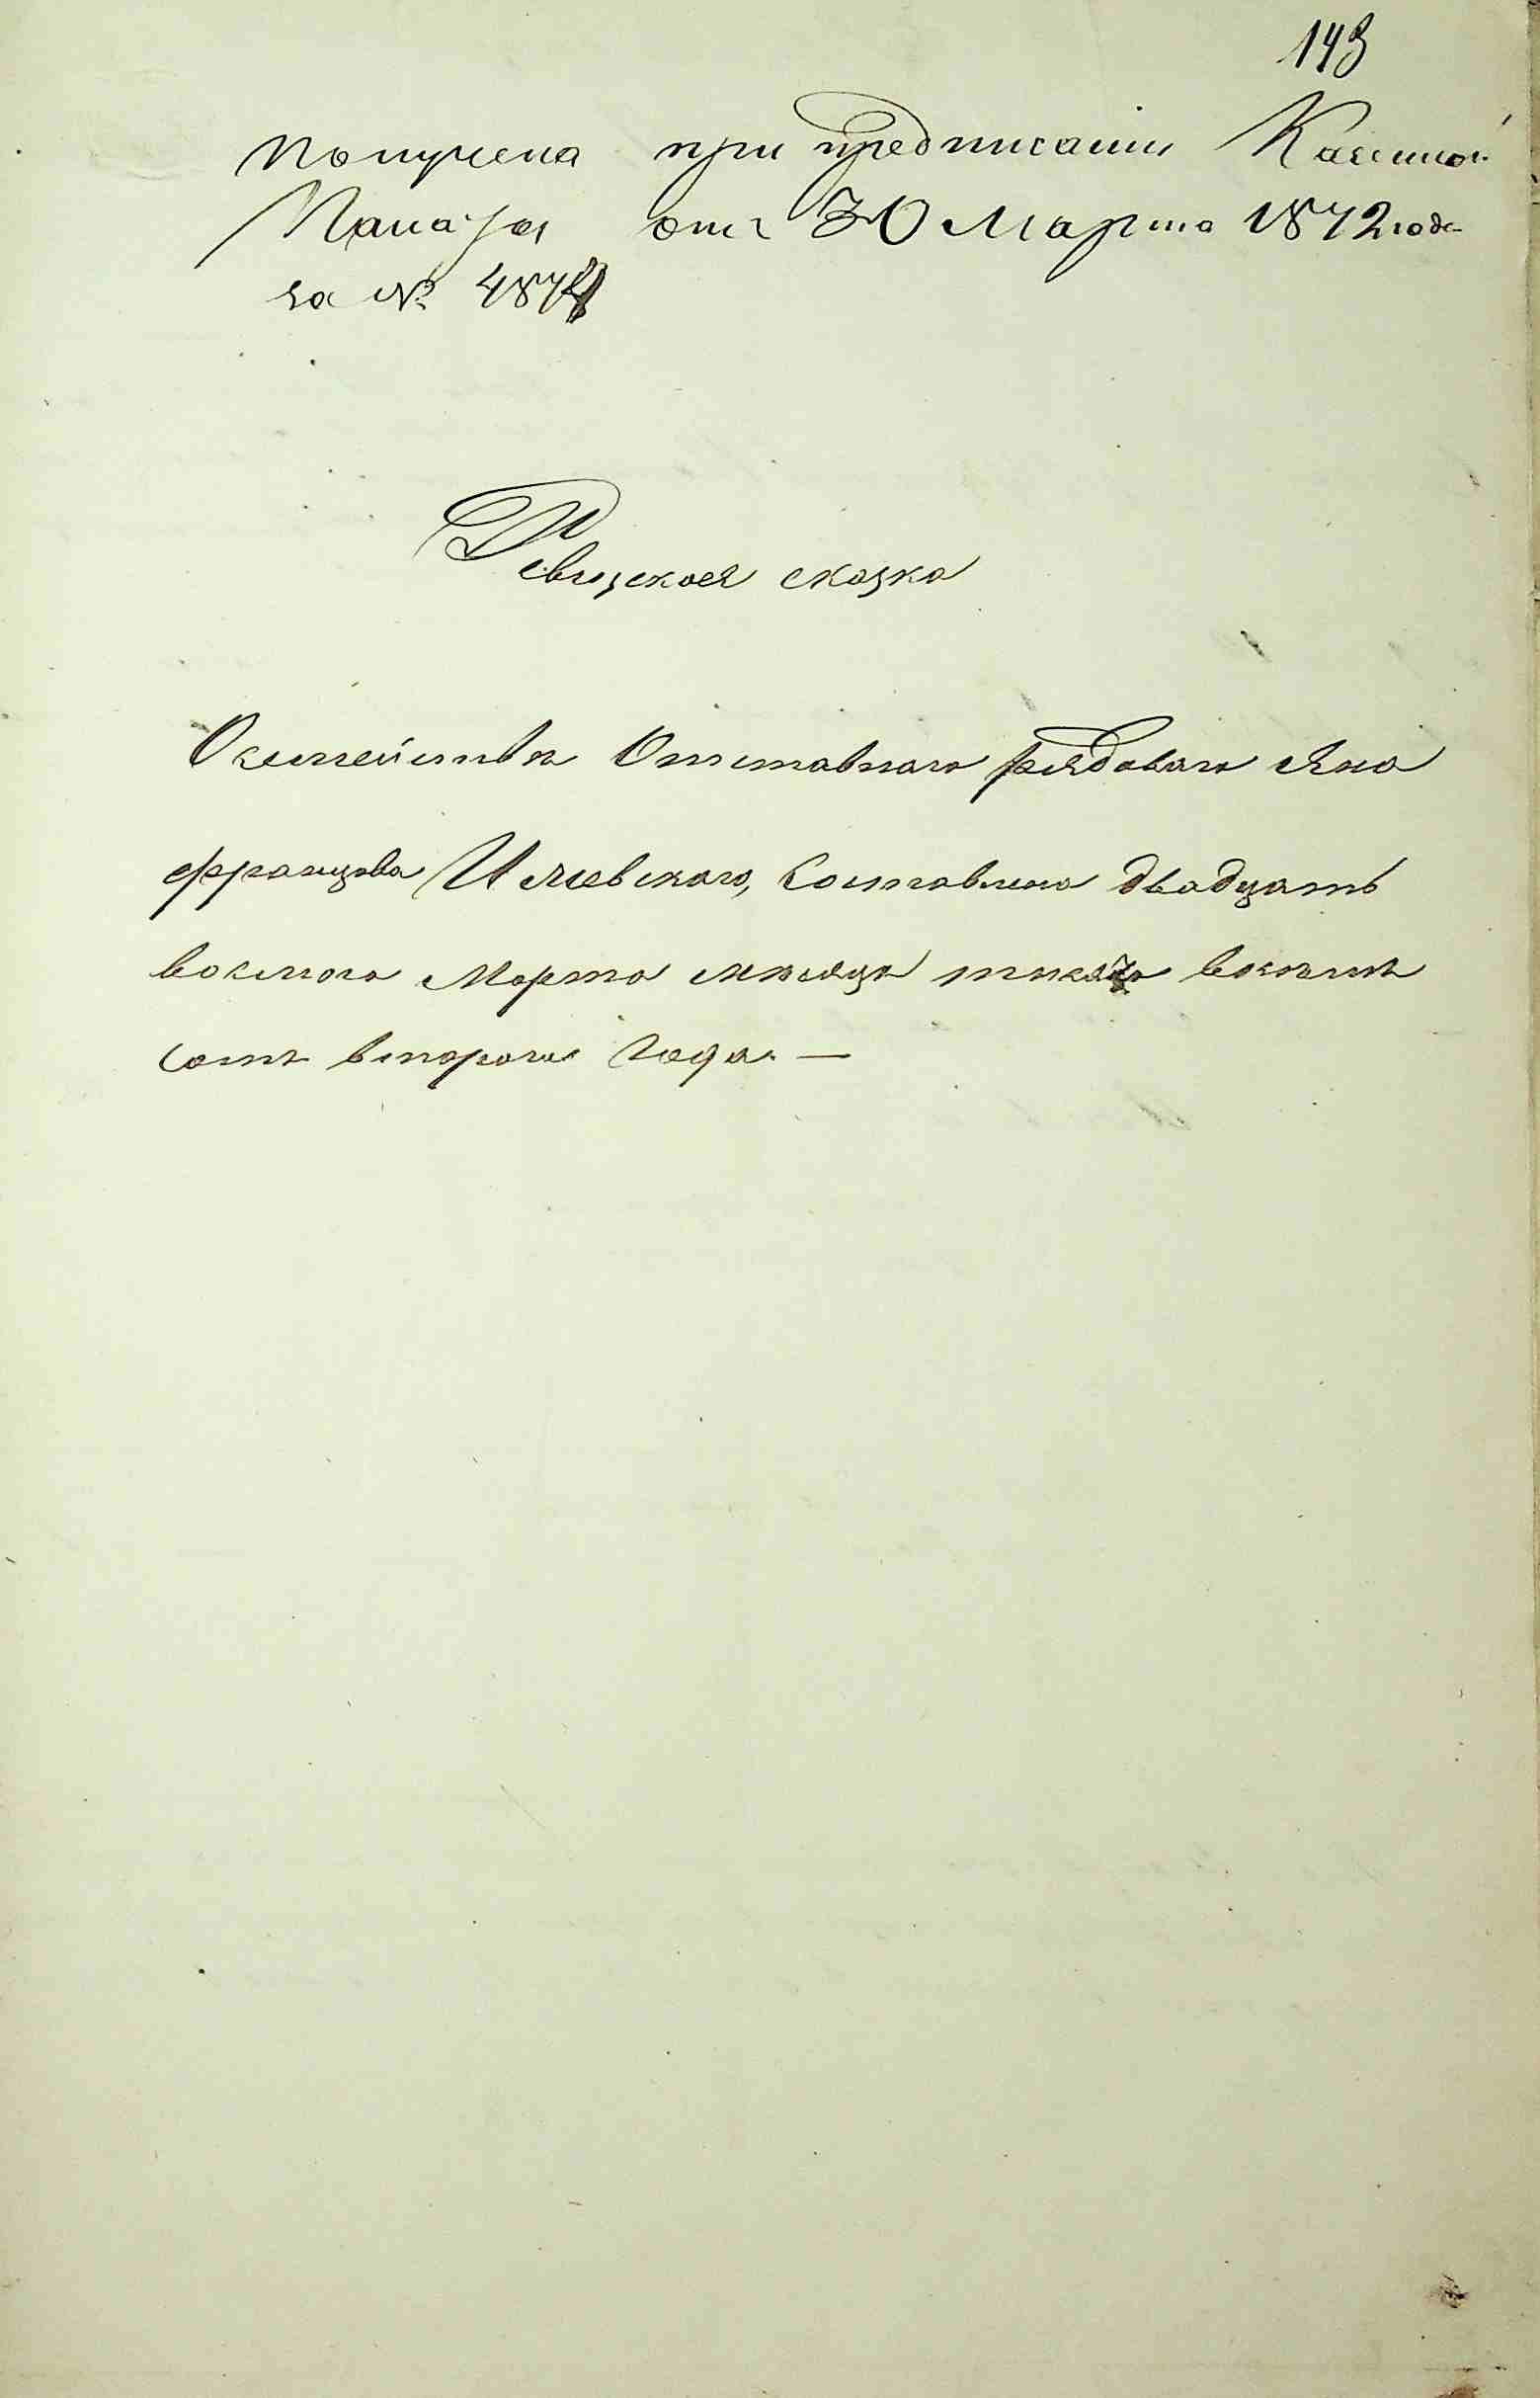 143
Получена при предписании Казенной
Палаты отъ 30 Марта 1872 года
за № 4874
Ревизская сказка
О семействе Отставного рядоваго Яна
францова Ильевскаго, Составлена двадцать
восмого Марта месяца тысяча восемь
сотъ второго года. —